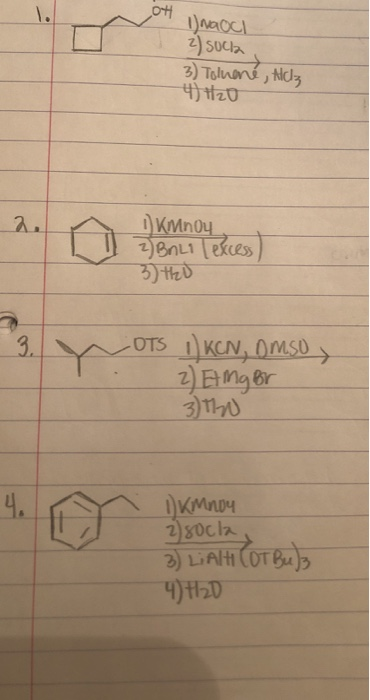 1. OH 1) NaOCl
2) SOCl2
3) Toluene, AlCl3
4) H2O
2. 1) KMnO4
2) BnLi (excess)
3) H2O
3. OTS 1) KCN, DMSO
2) EtMgBr
3) H2O
4. 1) KMnO4
2) SOCl2
3) LiAlH(OTBu)3
4) H2O